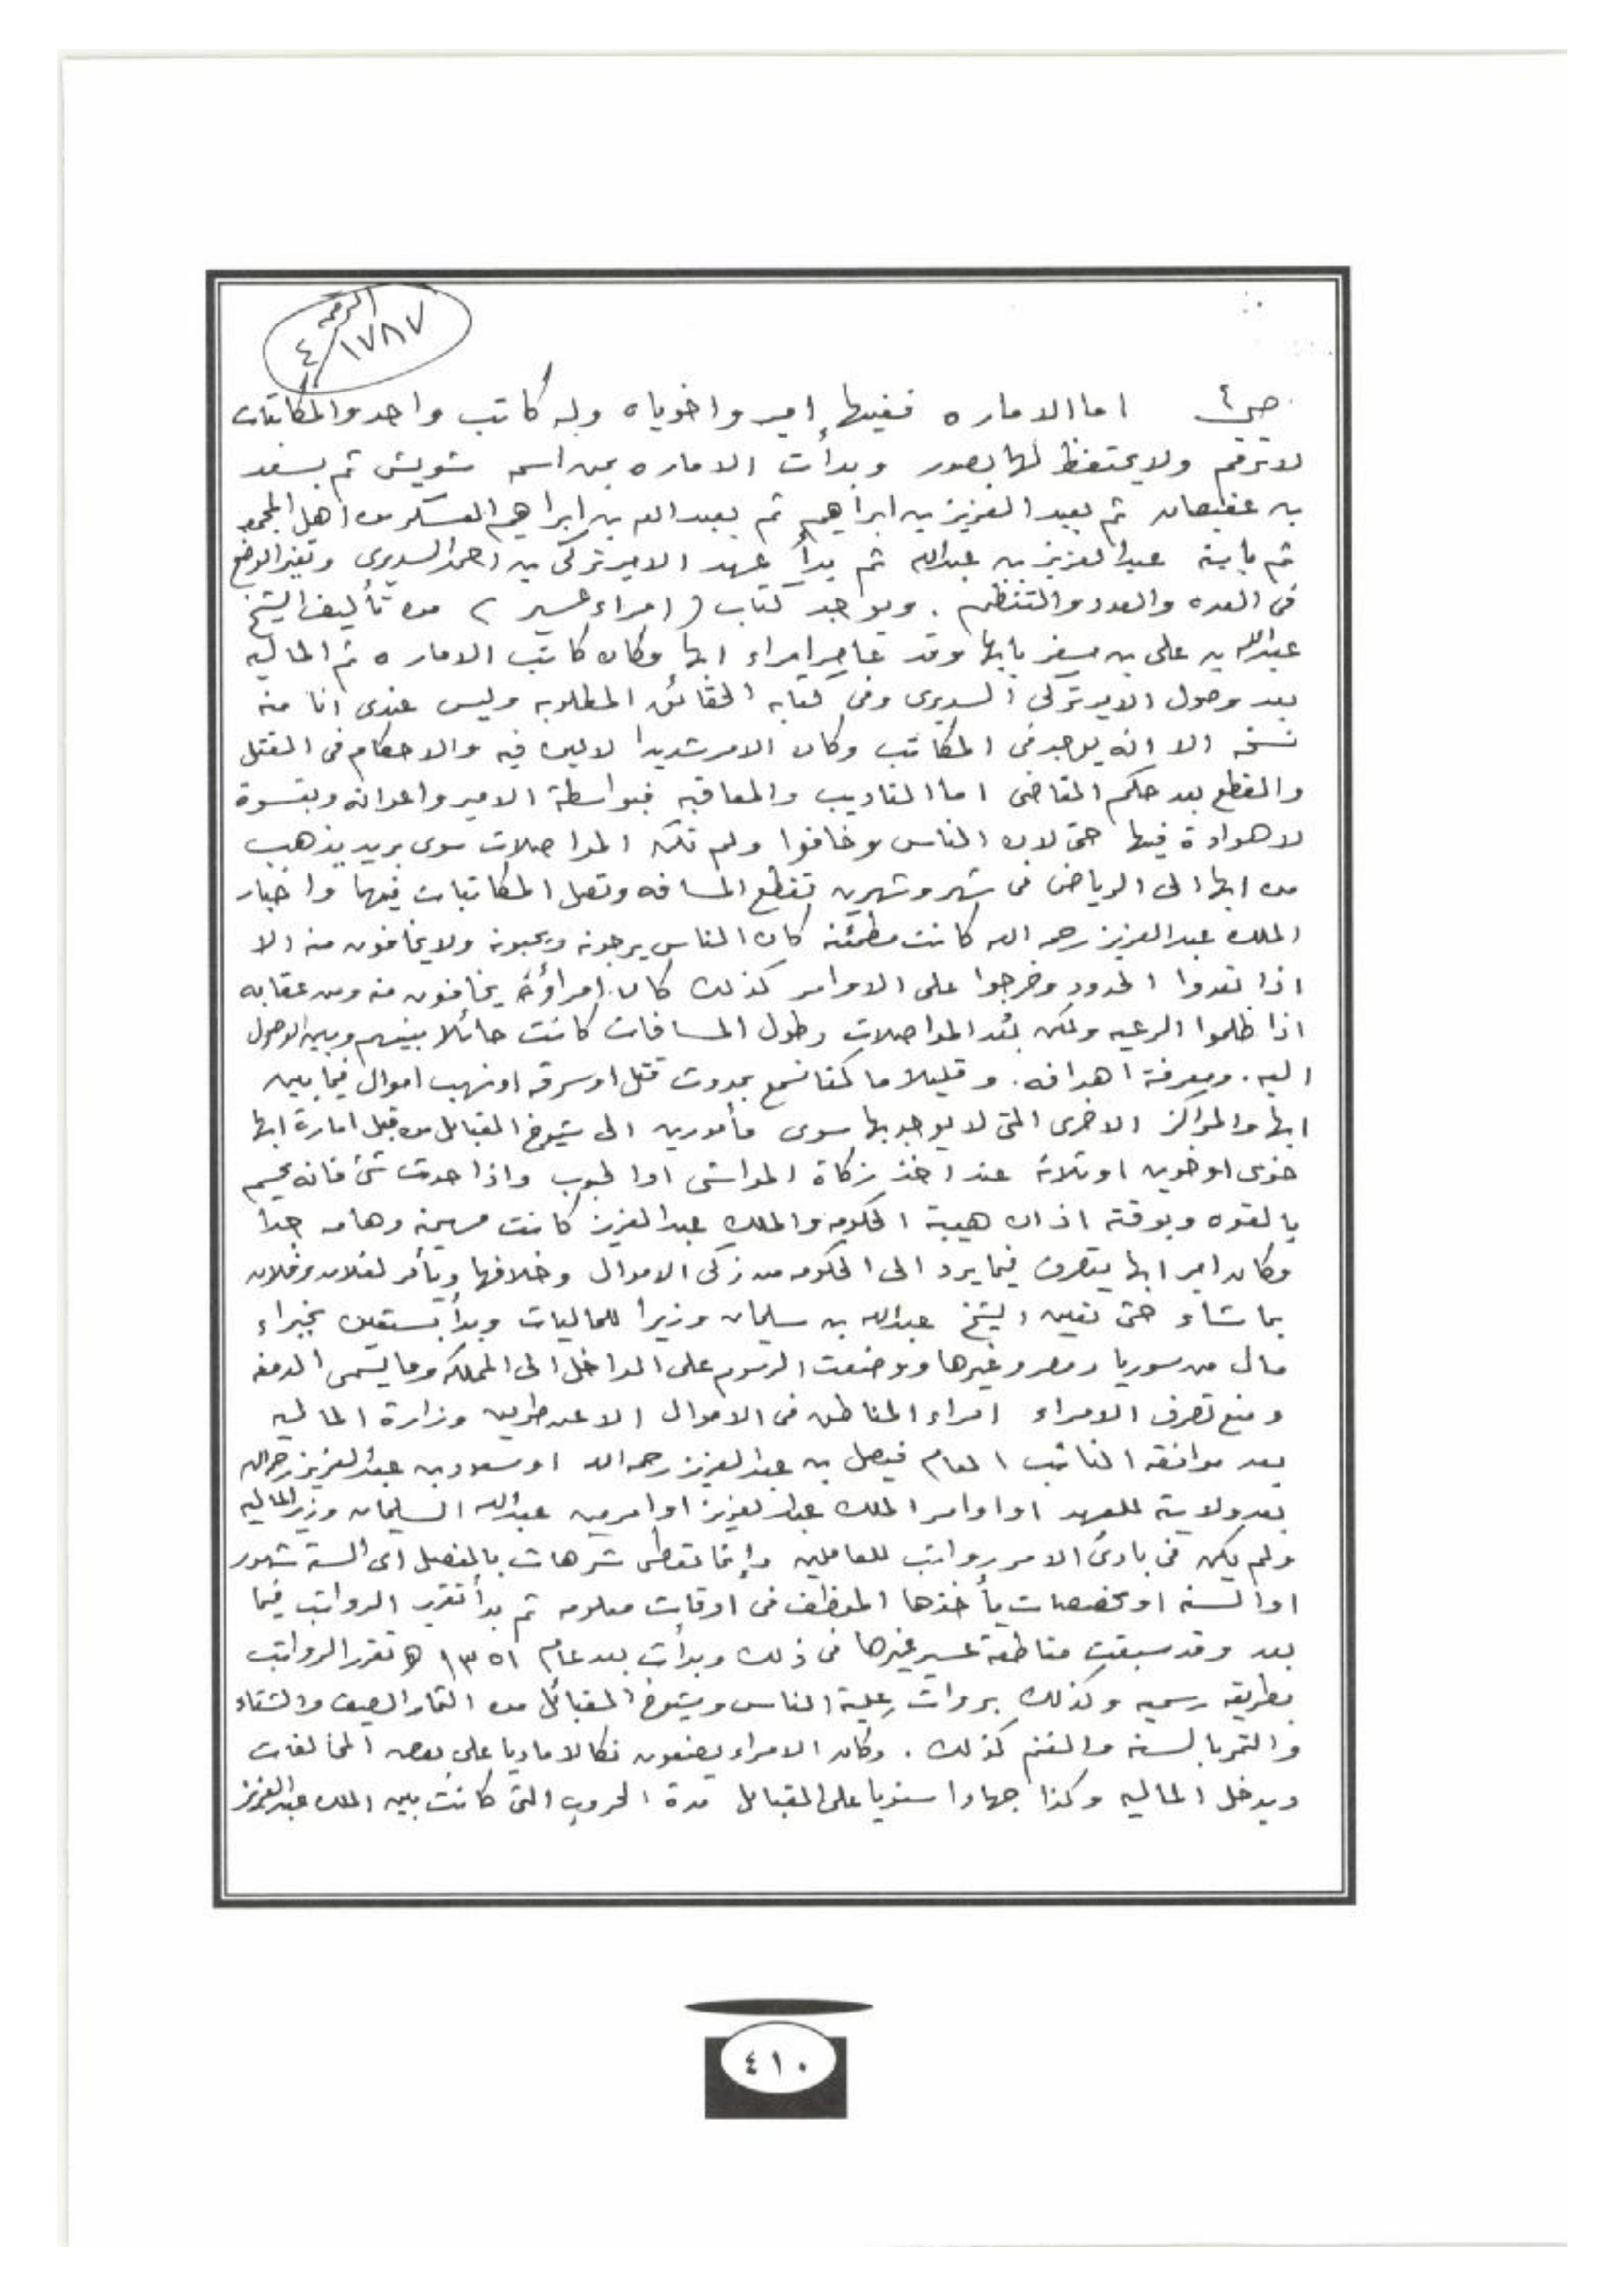 الرقم
١٧٨٧/٤
ص٤ اما الاماره ففيها امير واخوياه وله كاتب واحد والمكاتبات
لاترقم ولا يحتفظ لها بصور وبدأت الاماره بمن اسمه شويش ثم بسعد
بن عفيصان ثم بعبد العزيز بن ابراهيم ثم بعبد الله بن ابراهيم العسكر من اهل المجمعه
ثم بابنه عبد العزيز بن عبدالله ثم بدأ عهد الامير تركي بن احمد السديري وتغير الوضع
في العده والعدد والتنظيم . ويوجد كتاب ( امراء عسير ) من تأليف الشيخ
عبدالله بن علي بن مسفر بابها وقد عاصر امراء ابها وكان كاتب الاماره ثم الماليه
بعد وصول الامير تركي السديري وفي كتابه الحقائق المطلوبه وليس عندي انا منه
نسخه الا انه يوجد في المكاتب وكان الامر شديدا لا لين فيه والاحكام في القتل
والقطع بعد حكم القاضي اما التاديب والمعاقبه فبواسطة الامير واعوانه وبقسوة
لا هوادة فيها حتى لان الناس وخافوا ولم تكن المواصلات سوى بريد يذهب
من ابها الى الرياض في شهر وشهرين تقطع المسافه وتصل المكاتبات فيها واخبار
الملك عبد العزيز رحمه الله كانت مطمئنه كان الناس يرجونه ويحبونه ولا يخافون منه الا
اذا تعدوا الحدود وخرجوا على الاوامر كذلك كان امراؤه يخافون منه ومن عقابه
اذا ظلموا الرعيه ولكن بعد المواصلات وطول المسافات كانت حائلا بينهم وبين الوصول
اليه . ومعرفة اهدافه . وقليلا ما كنا نسمع بحدوث قتل او سرقه او نهب اموال فيما بين
ابها والمراكز الاخرى التي لا يوجد بها سوى مأمورين الى شيوخ القبائل من قبل امارة ابها
خوي او خوين او ثلاثه عند اخذ زكاة المواشي او الحبوب واذا حدث شئ فانه يحسم
بالقوه وبوقته اذ ان هيبة الحكومه والملك عبد العزيز كانت مهيمنه وهامه جدا
وكان امير ابها يتصرف فيما يرد الى الحكومه من زكى الاموال وخلافها ويأمر لفلان وفلان
بما شاء حتى تعين الشيخ عبدالله بن سليمان وزيرا للماليات وبدأ يستعين بخبراء
مال من سوريا ومصر وغيرها ووضعت الرسوم على الداخل الى المملكه وما يسمى الدمغه
ومنع تصرف الامراء امراء المناطق في الاموال الا عن طريق وزارة الماليه
بعد موافقة النائب العام فيصل بن عبد العزيز رحمه الله او سعود بن عبد العزيز رحمه الله
بعد ولايته للعهد او اوامر الملك عبد العزيز او امر من عبدالله السليمان وزير الماليه
ولم يكن في بادئ الامر رواتب للعاملين وانما تعطى شرهات بالفصل اي السته شهور
او السنه او مخصصات يأخذها الموظف في اوقات معلومه ثم بدأ تقرير الرواتب فيما
بعد وقد سبقت مقاطعة عسير غيرها في ذلك وبدأت بعد عام ١٣٥١ ه تقرر الرواتب
بطريقه رسميه وكذلك بروات علية الناس وشيوخ القبائل من الثمار الصيف والشتاء
والتمر بالسنه والغنم كذلك . وكان الامراء يضعون نكالا ماديا على بعض المخالفات
ويدخل الماليه وكذا جهادا سنويا على القبائل مدة الحروب التي كانت بين الملك عبد العزيز
٤١٠